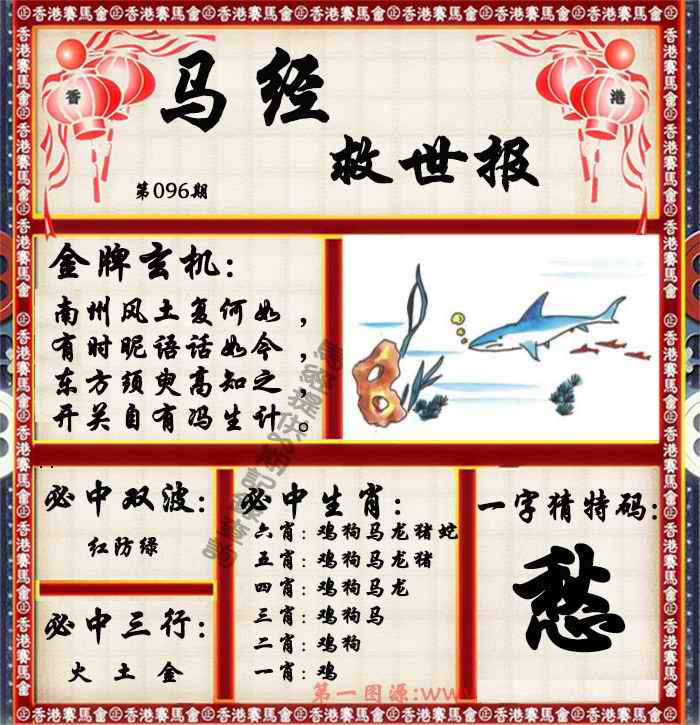 香港賽馬會
香
港
马经
救世报
第096期
金牌玄机:
南州风土复何如，
有时昵语话如今，
东方须臾高知之，
开关自有冯生计。
必中双波:
红防绿
必中三行:
火 土 金
必中生肖:
六肖: 鸡狗马龙猪蛇
五肖: 鸡狗马龙猪
四肖: 鸡狗马龙
三肖: 鸡狗马
二肖: 鸡狗
一肖: 鸡
一字猜特码:
愁
第一图源:www